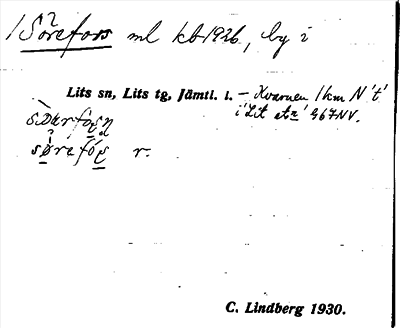 1 Sörefors ml kb 1926, by i
Lits sn, Lits tg, Jämtl. l. – Kvarnen 1 km N 't'
i 'Lit stn' 967NV.
r.
C. Lindberg 1930.